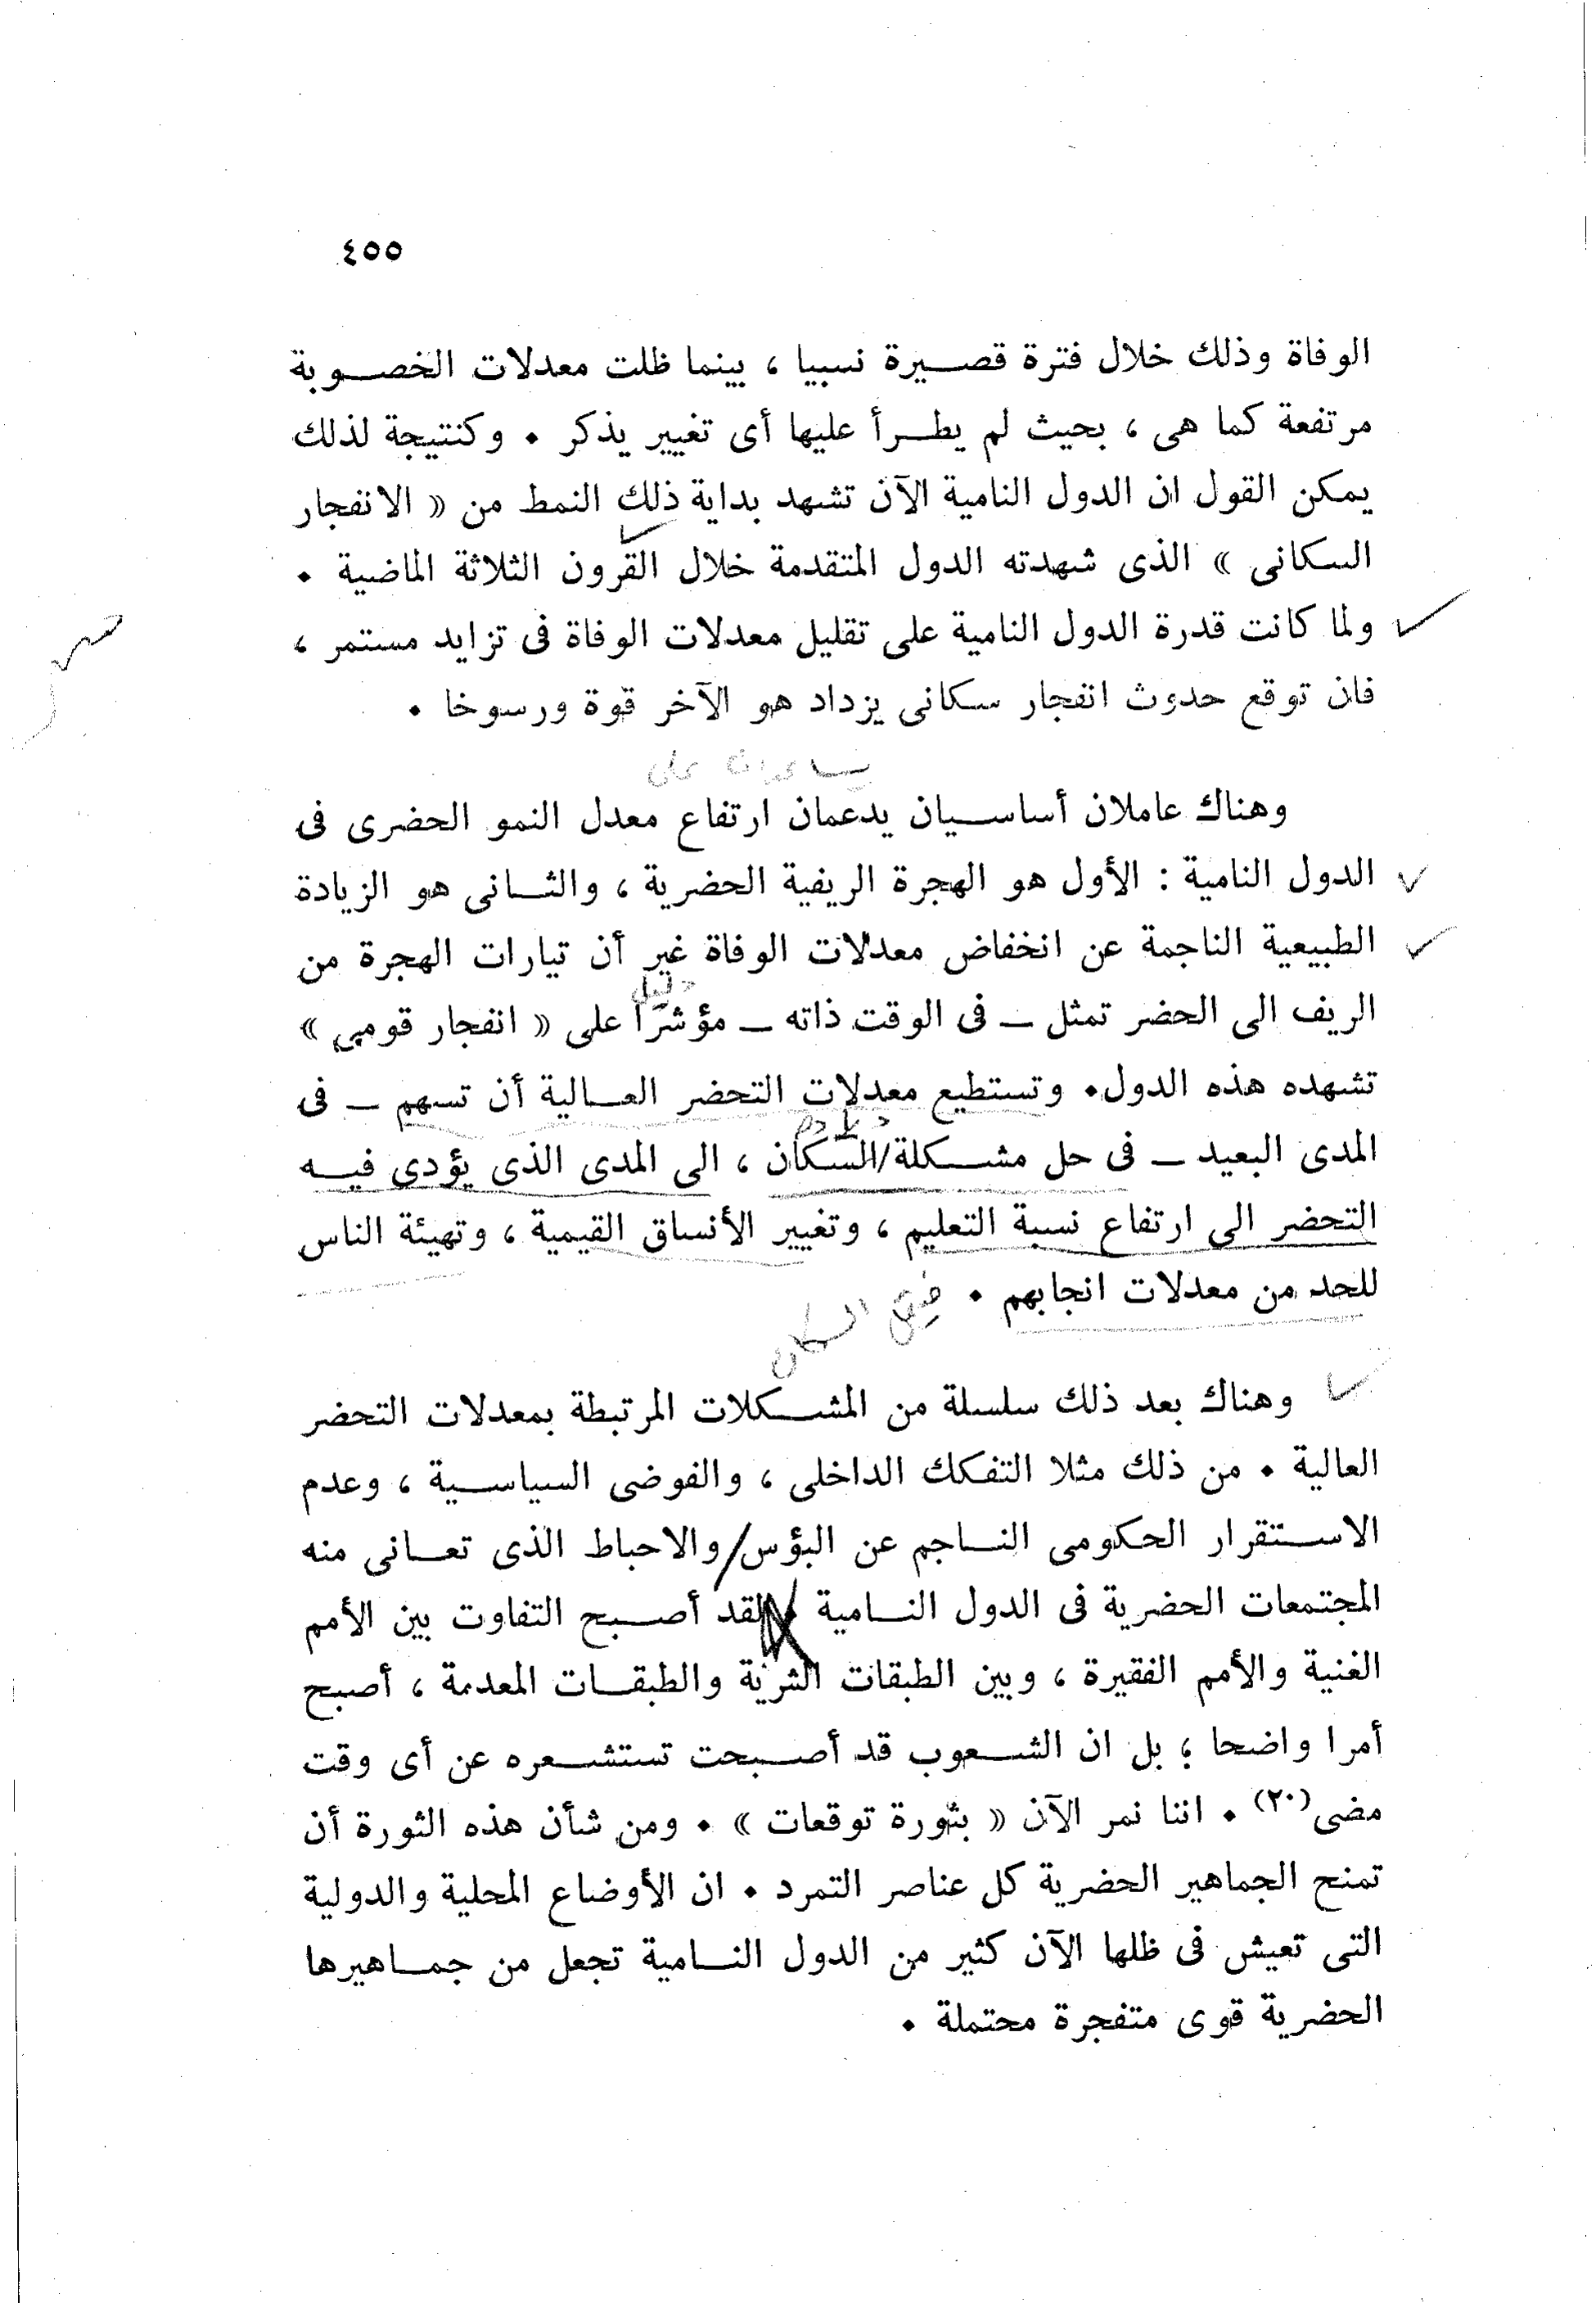 ٤٥٥
الوفاة وذلك خلال فترة قصيرة نسبيا ، بينما ظلت معدلات الخصوبة
مرتفعة كما هى ، بحيث لم يطرأ عليها أى تغيير يذكر . وكنتيجة لذلك
يمكن القول ان الدول النامية الآن تشهد بداية ذلك النمط من « الانفجار
السكانى » الذى شهدته الدول المتقدمة خلال القرون الثلاثة الماضية .
ولما كانت قدرة الدول النامية على تقليل معدلات الوفاة فى تزايد مستمر ،
فان توقع حدوث انفجار سكانى يزداد هو الآخر قوة ورسوخا .
يساعدان على
وهناك عاملان أساسيان يدعمان ارتفاع معدل النمو الحضرى فى
الدول النامية : الأول هو الهجرة الريفية الحضرية ، والثانى هو الزيادة
الطبيعية الناجمة عن انخفاض معدلات الوفاة غير أن تيارات الهجرة من
دليل
الريف الى الحضر تمثل — فى الوقت ذاته — مؤشرا على « انفجار قومى »
تشهده هذه الدول. وتستطيع معدلات التحضر العالية أن تسهم — فى
المدى البعيد — فى حل مشكلة/السكان ، الى المدى الذى يؤدى فيه
التحضر الى ارتفاع نسبة التعليم ، وتغيير الأنساق القيمية ، وتهيئة الناس
للحد من معدلات انجابهم .
السكان
وهناك بعد ذلك سلسلة من المشكلات المرتبطة بمعدلات التحضر
العالية . من ذلك مثلا التفكك الداخلى ، والفوضى السياسية ، وعدم
الاستقرار الحكومى الناجم عن البؤس/والاحباط الذى تعانى منه
المجتمعات الحضرية فى الدول النامية . لقد أصبح التفاوت بين الأمم
الغنية والأمم الفقيرة ، وبين الطبقات الثرية والطبقات المعدمة ، أصبح
أمرا واضحا ؛ بل ان الشعوب قد أصبحت تستشعره عن أى وقت
مضى(٢٠) . اننا نمر الآن « بثورة توقعات » . ومن شأن هذه الثورة أن
تمنح الجماهير الحضرية كل عناصر التمرد . ان الأوضاع المحلية والدولية
التى تعيش فى ظلها الآن كثير من الدول النامية تجعل من جماهيرها
الحضرية قوى متفجرة محتملة .